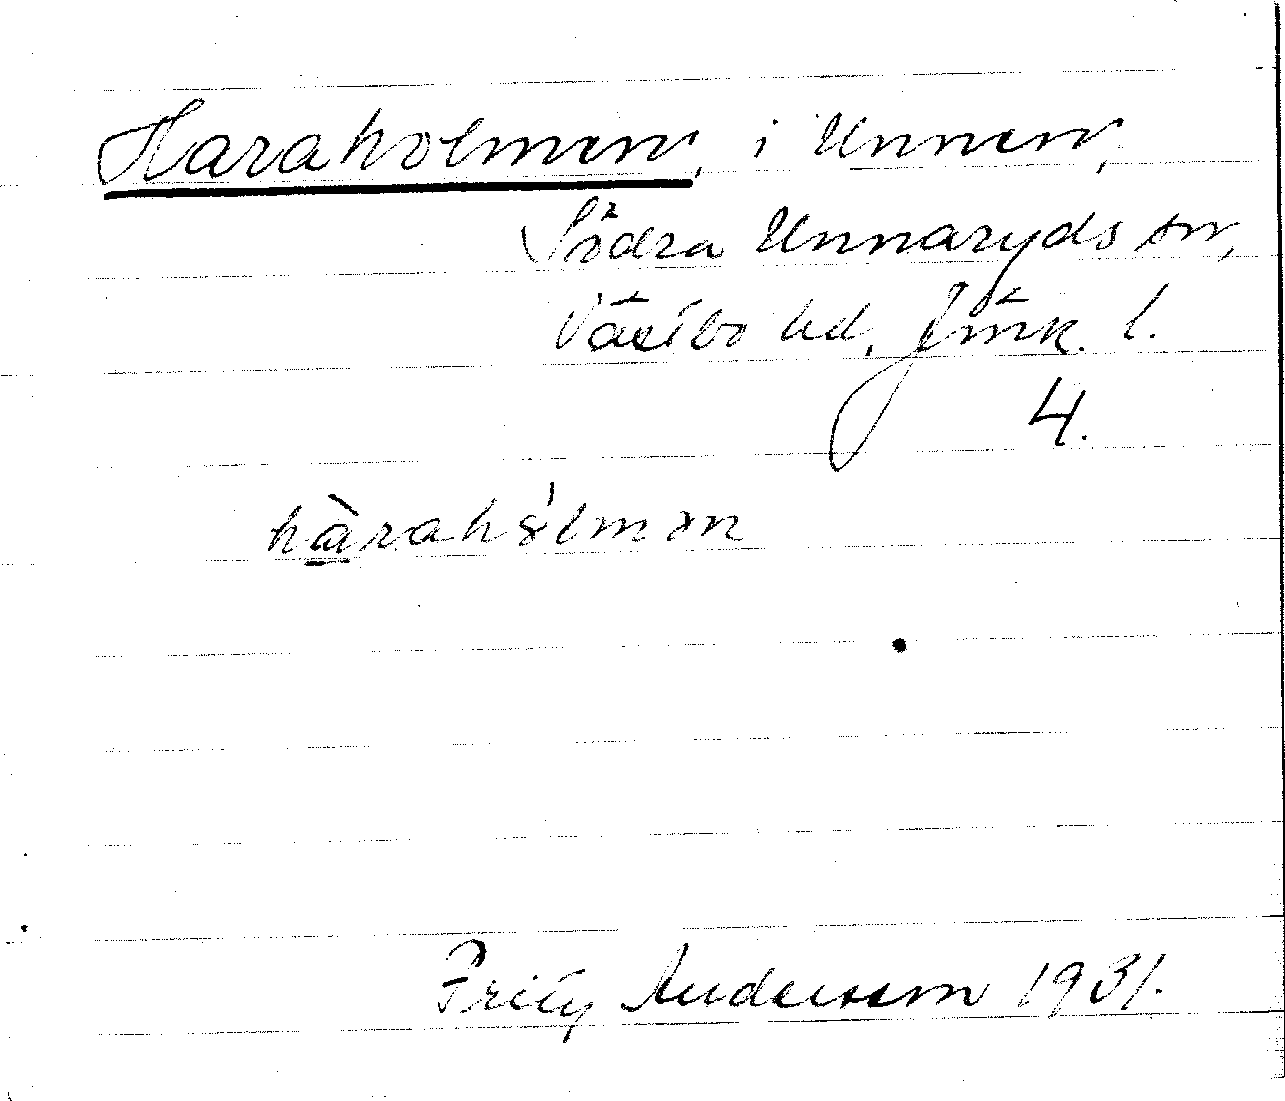 Haraholmen, i Unnen,
Södra Unnaryds sn,
Västbo hd, Jönk. l.
4.
hàrahólmən
Fritz Andersson 1931.